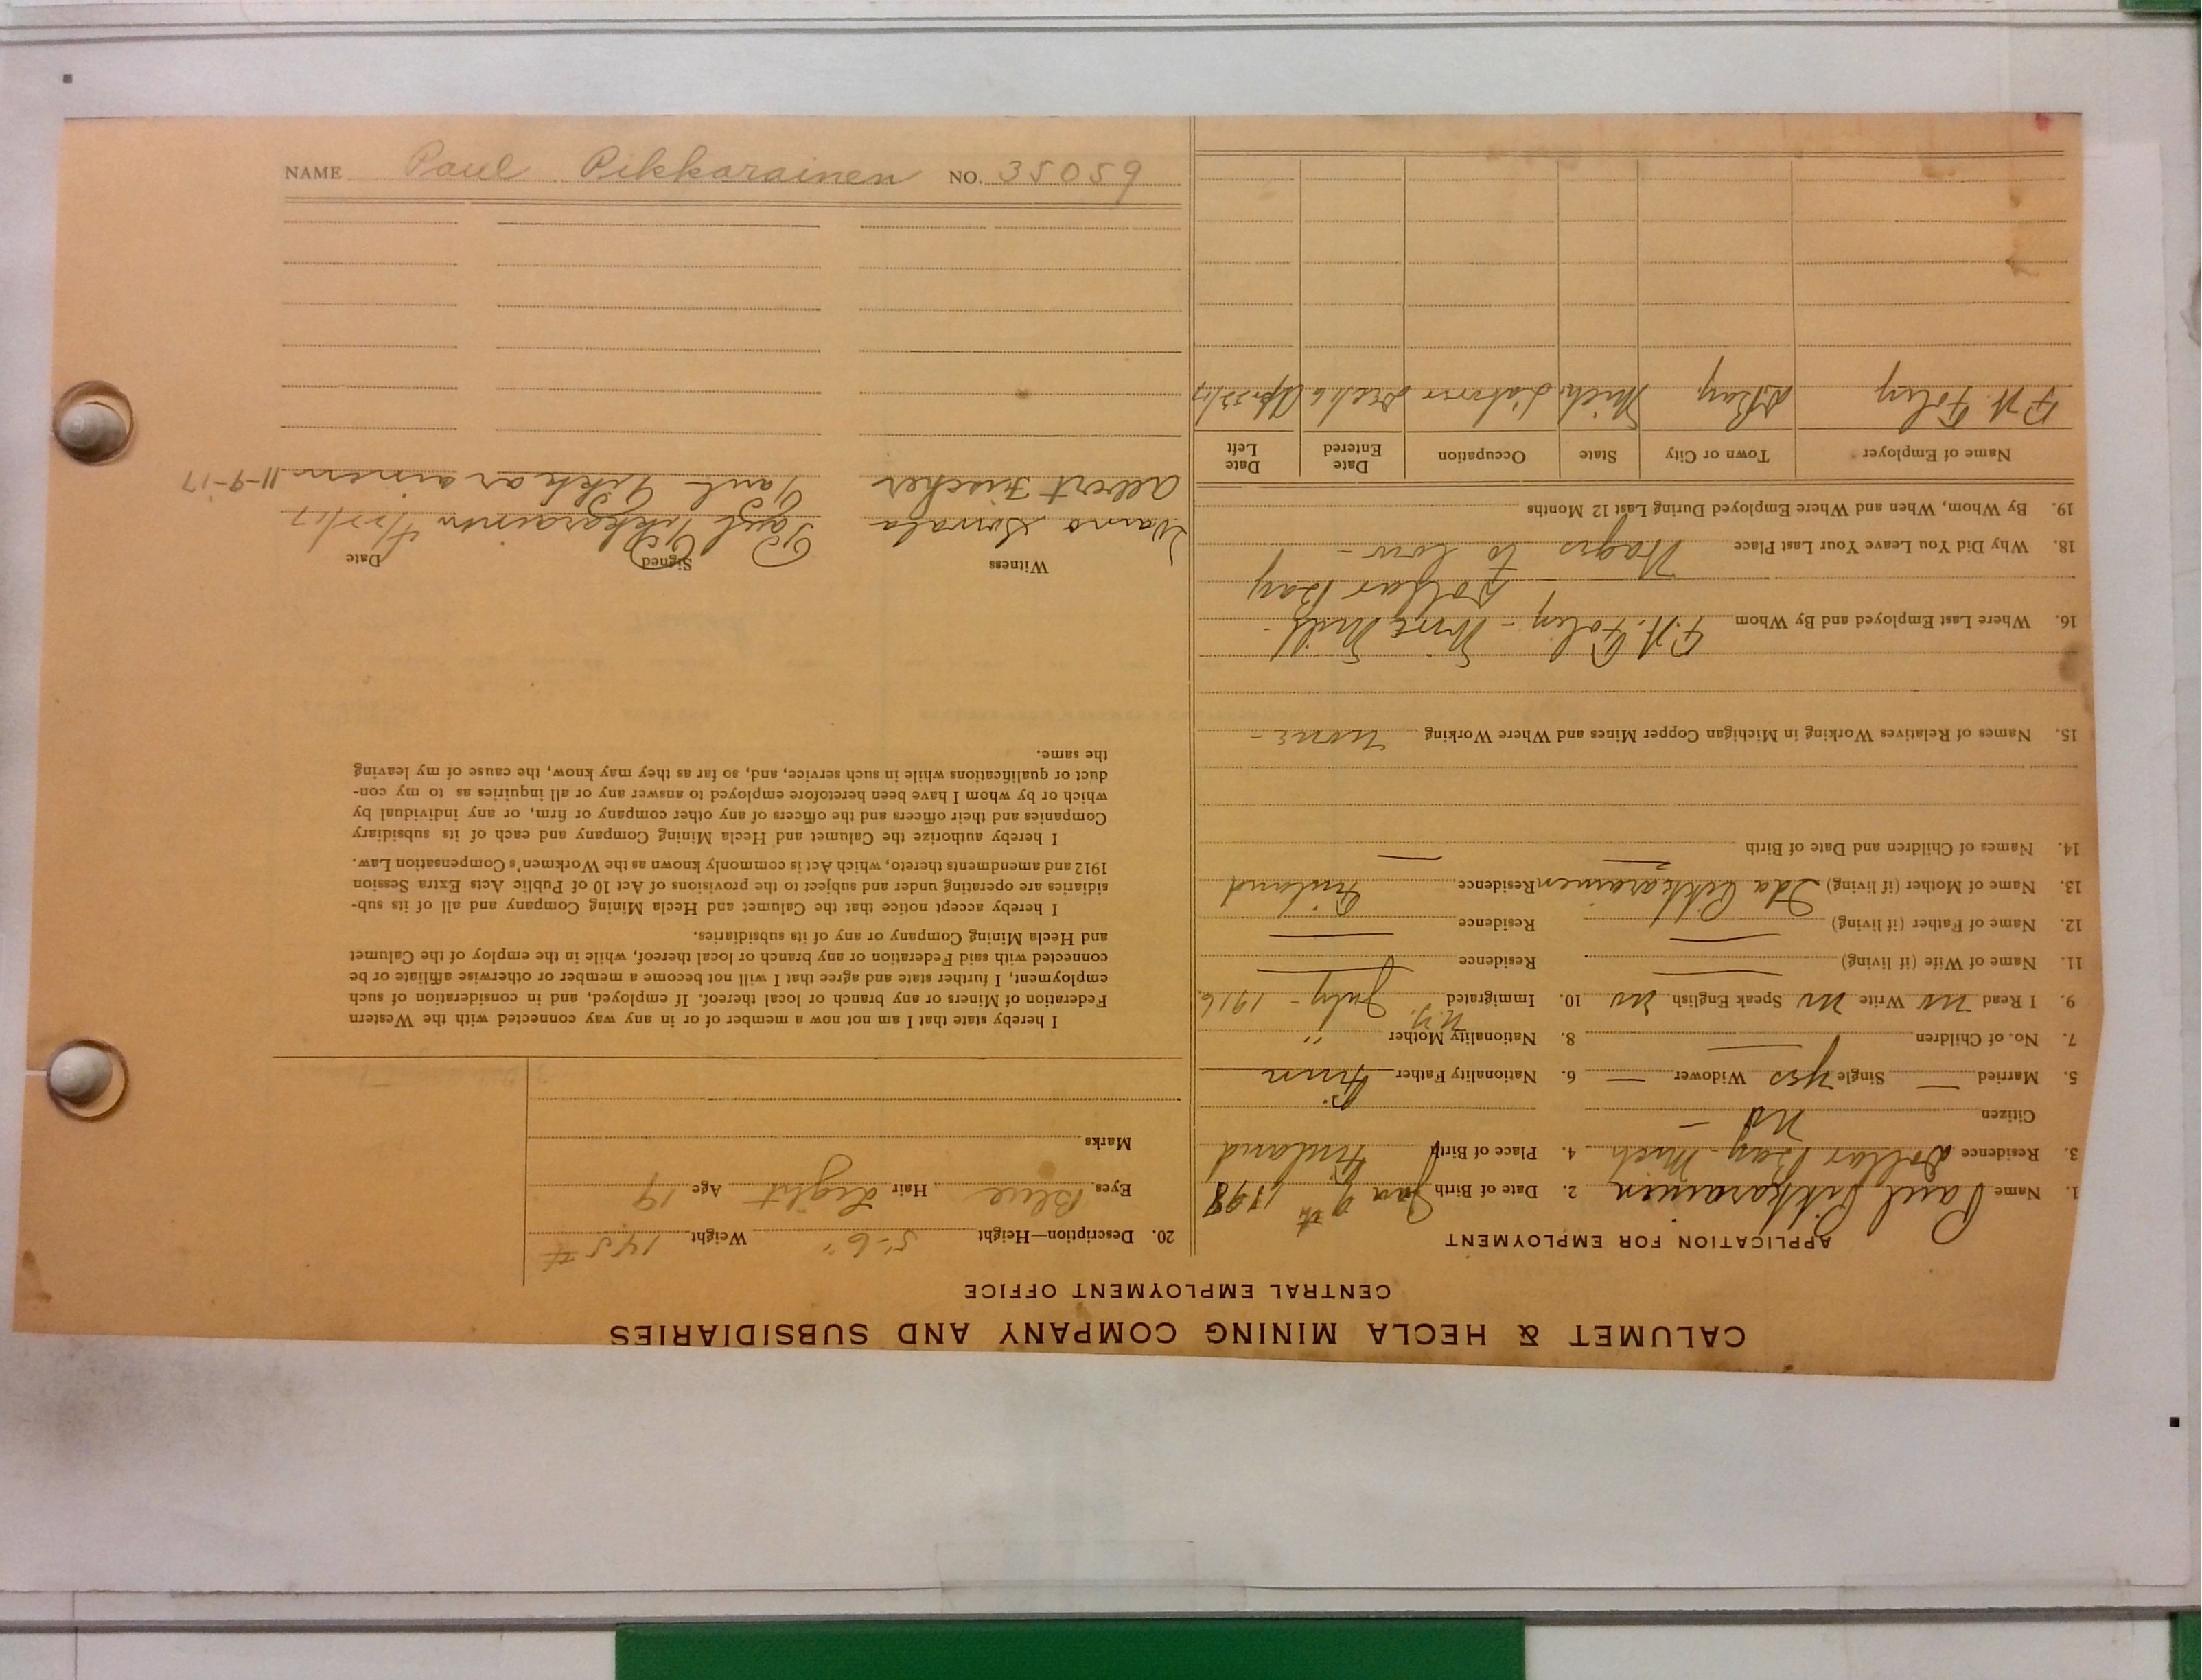 CALUMET & HECLA MINING COMPANY AND SUBSIDIARIES
CENTRAL EMPLOYMENT OFFICE
APPLICATION FOR EMPLOYMENT
1. Name Paul Pikkarainen 2. Date of Birth Jan 9th 1898
3. Residence Dollar Bay Mich 4. Place of Birth Finland
Citizen No -
5. Married — Single yes Widower — 6. Nationality Father Finn
7. No. of Children — 8. Nationality Mother "
N.Y.
9. I Read no Write no Speak English no 10. Immigrated July - 1916
11. Name of Wife (if living) — Residence —
12. Name of Father (if living) — Residence —
13. Name of Mother (if living) Ida Pikkarainen Residence Finland
14. Names of Children and Date of Birth — —
15. Names of Relatives Working in Michigan Copper Mines and Where Working none -
16. Where Last Employed and By Whom F.H. Foley - Wire Mill -
Dollar Bay
18. Why Did You Leave Your Last Place Wages to low -
19. By Whom, When and Where Employed During Last 12 Months
Name of Employer Town or City State Occupation Date Entered Date Left
F.H. Foley D. Bay Mich. Laborer Dec 16 Apr 22/17
20. Description—Height 5'-6" Weight 145 #
Eyes Blue Hair Light Age 19
Marks
I hereby state that I am not now a member of or in any way connected with the Western
Federation of Miners or any branch or local thereof. If employed, and in consideration of such
employment, I further state and agree that I will not become a member or otherwise affiliate or be
connected with said Federation or any branch or local thereof, while in the employ of the Calumet
and Hecla Mining Company or any of its subsidiaries.
I hereby accept notice that the Calumet and Hecla Mining Company and all of its sub-
sidiaries are operating under and subject to the provisions of Act 10 of Public Acts Extra Session
1912 and amendments thereto, which Act is commonly known as the Workmen's Compensation Law.
I hereby authorize the Calumet and Hecla Mining Company and each of its subsidiary
Companies and their officers and the officers of any other company or firm, or any individual by
which or by whom I have been heretofore employed to answer any or all inquiries as to my con-
duct or qualifications while in such service, and, so far as they may know, the cause of my leaving
the same.
Witness Signed Date
Paul Pikkarainen 4/22/17
Albert Fischer Paul Pikkarainen 11-9-17
NAME Paul Pikkarainen NO. 35059